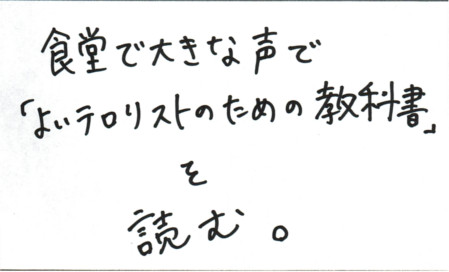 食堂で大きな声で
「よいテロリストのための教科書」
を
読む。